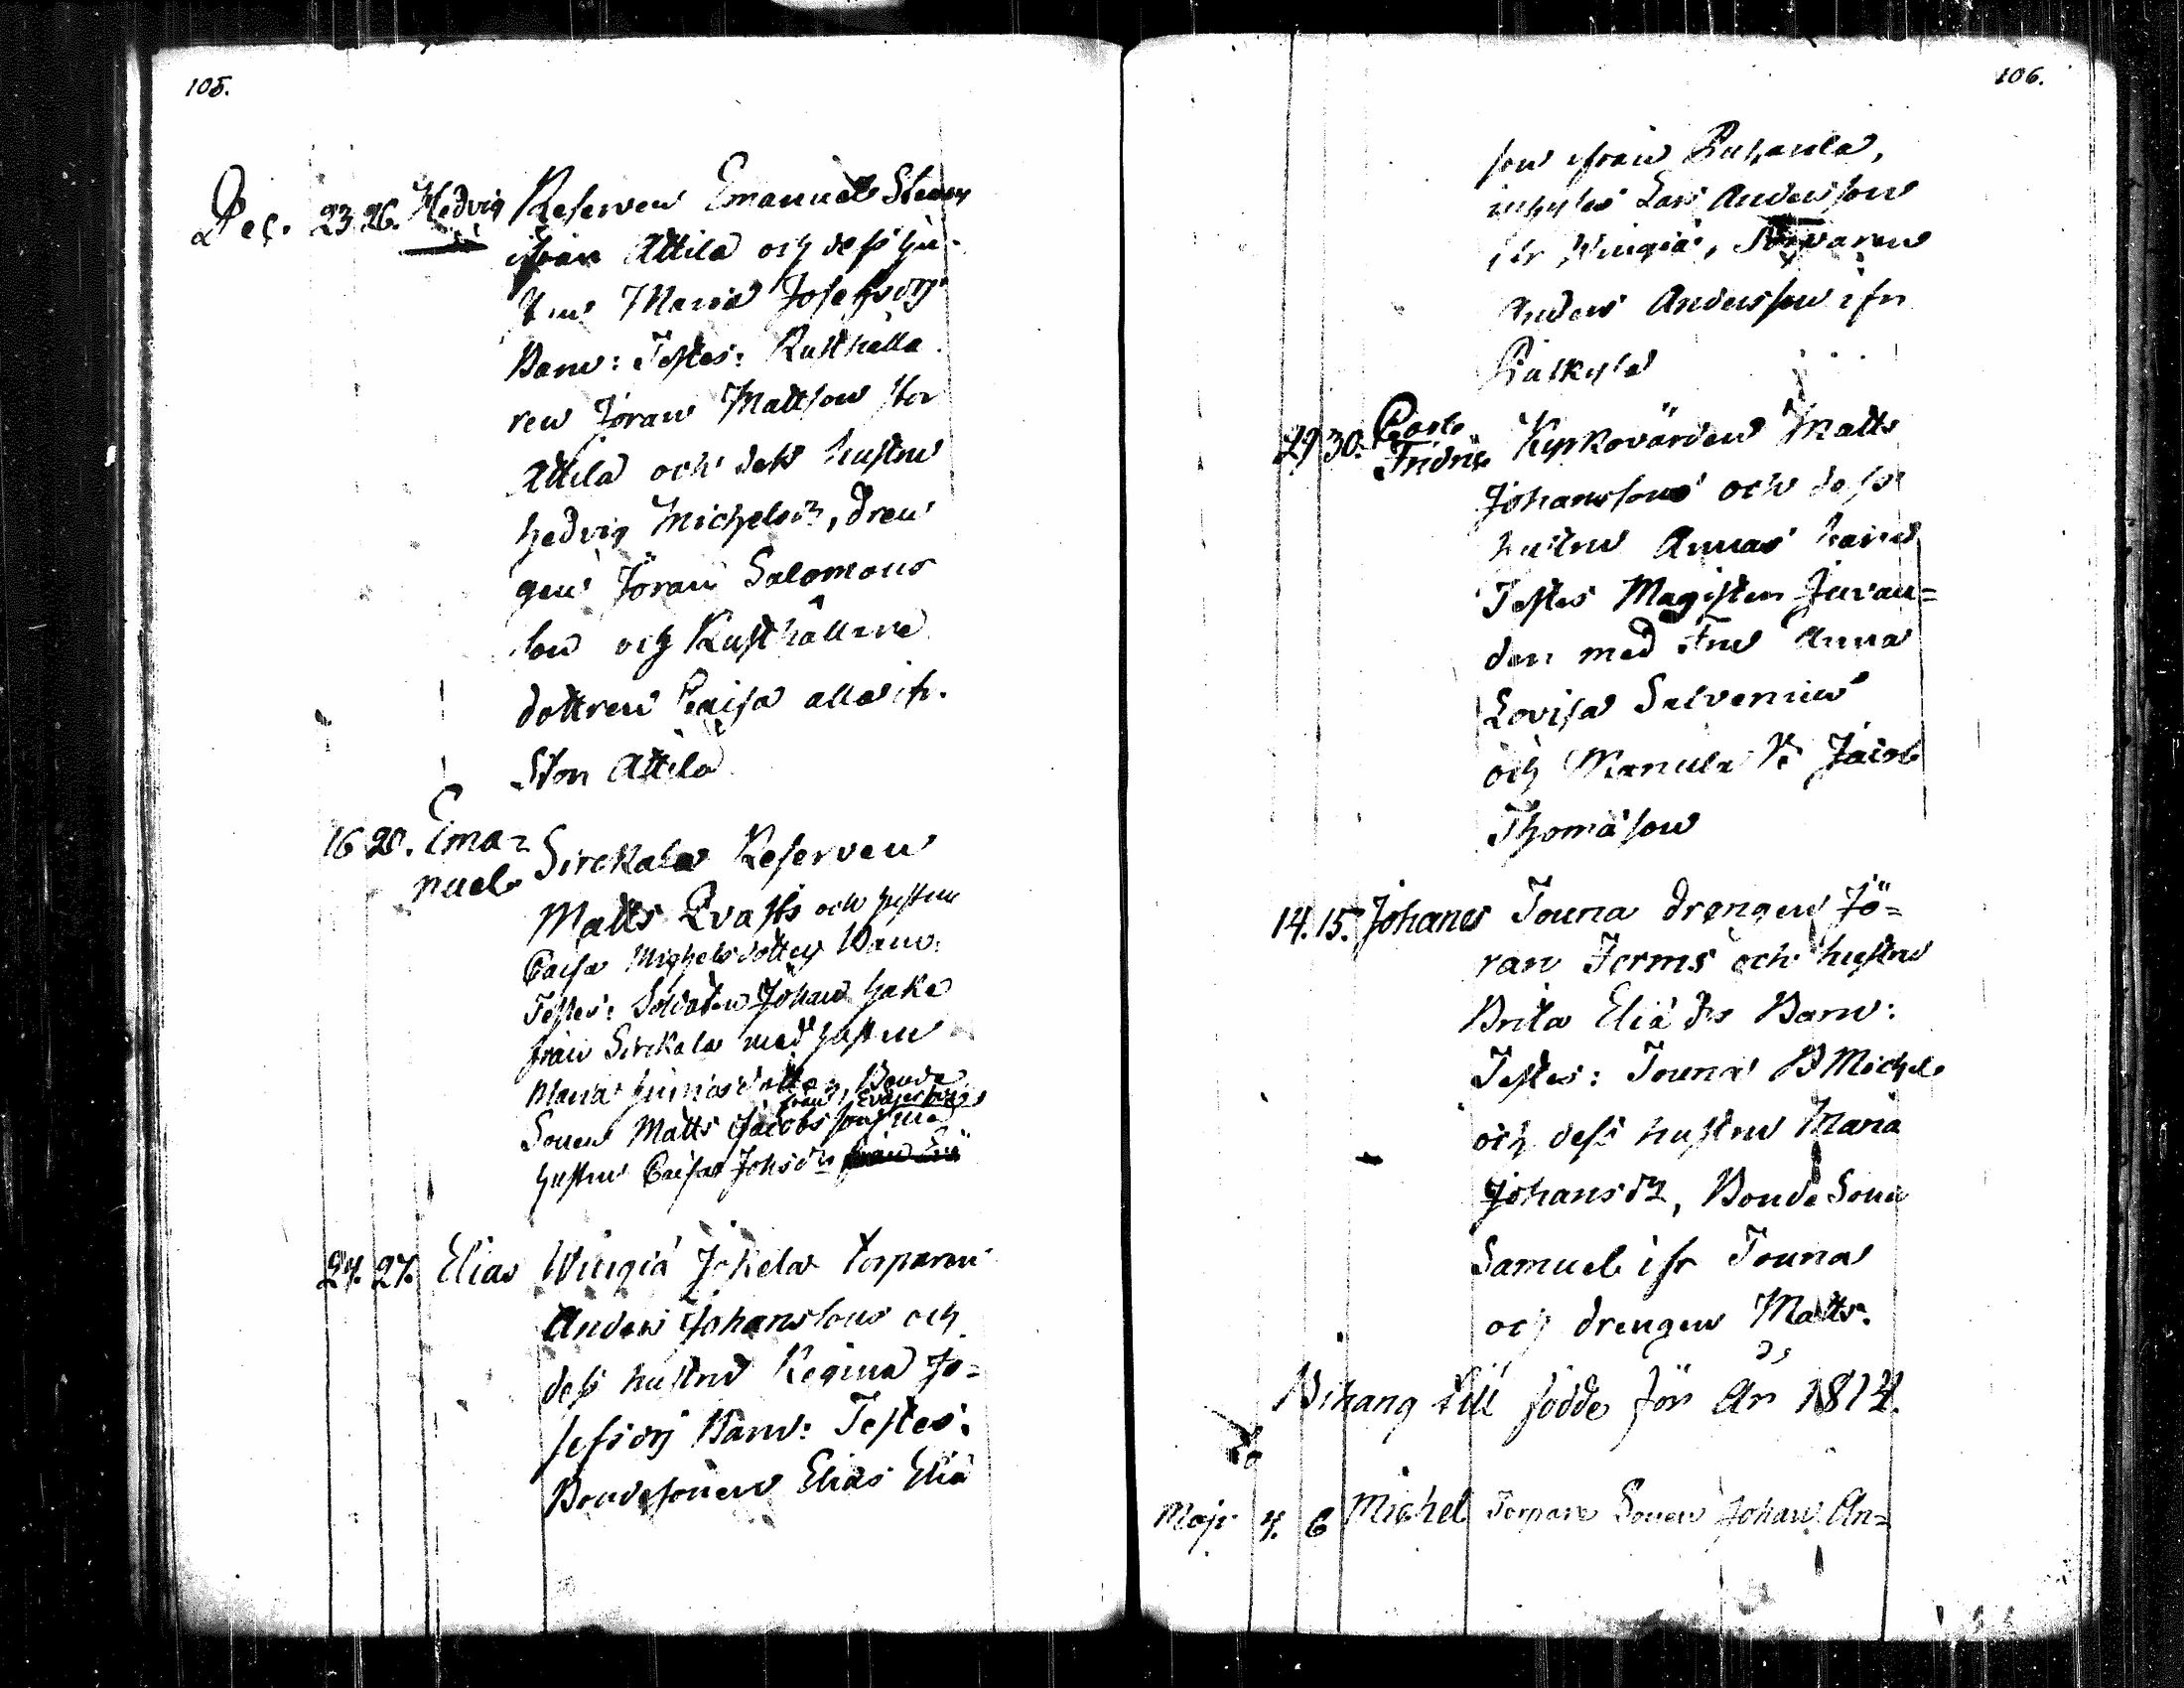 105.
Dec. 23 26. Hedvig Reserven Emanuel
ifrån Attila och dess hu-
Maria Josephsdtr
Barn: Testes: Rusthålla
ren Jöran Mattson Stor
Attila och dess hustru
Hedvig Michelsdr, Dren
gen Jöran Salomons
son och Rusthållare
dottren Caisa alla ifr.
Stor Attila
16 28. Ema=
nuel Sirckala Reserven
Matts Qvast och hustru
Caisa Michelsdotters Barn.
Testes: Soldaten Johan Hake
från Sirckala med hustru
Maria Bonde
från
Sonen Matts Jacobsson med
hustru Caisa Johsdr från
24. 27. Elias Wingiä Torparen
Anders Johanssons och
dess hustru Regina Jo=
sefsdtr Barn: Testes:
Bondesonen Elias Eliä
106.
son ifrån
inhyses Lars Andersson
ifr Wingiä, Torparen
Anders Andersson ifrn
29 30. Carl
Fridric Kyrkovärden Matts
Johanssons och dess
hustru Annas barn
Testes Magister
den med Fru Anna
Lovisa Salvenius
och Jacob
Thomasson
14. 15. Johanes Touna drengen Jö=
ran Jerms och hustru
Brita Eliä dr Barn:
Testes: Touna B Michel
och dess hustru Maria
Johansdr, Bonde Sonen
Samuel ifr Touna
och drengen Matts.
Bihang till födde för År 1814.
Maji 4. 6 Michel Torpare Sonen Johan An=